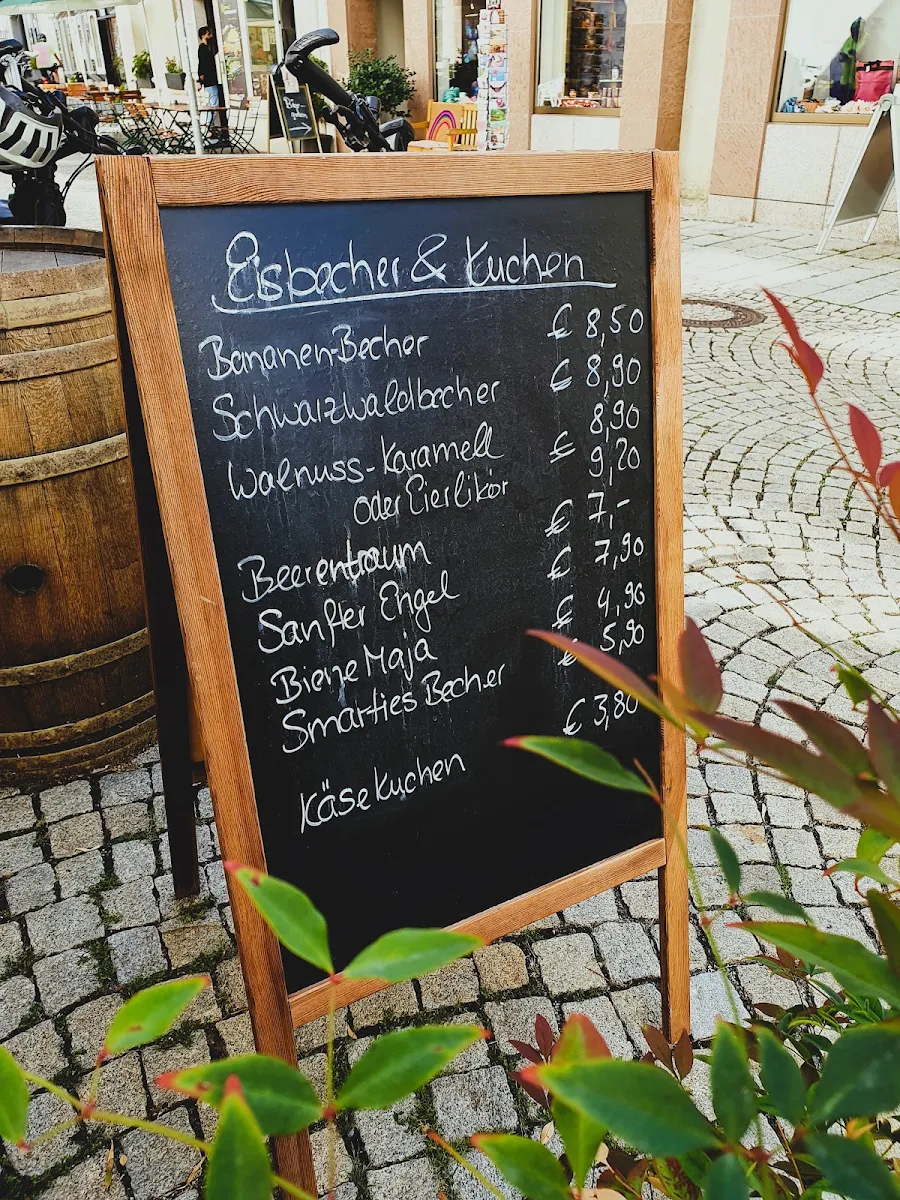 Eisbecher & Kuchen
Bananen-Becher € 8,50
Schwarzwaldbecher € 8,90
Walnuss-Karamell 8,90
oder Eierlikör € 9,20
Beerentraum € 7,-
Sanfter Engel € 7,90
Biene Maja € 4,90
Smarties Becher € 5,90
Käsekuchen € 3,80